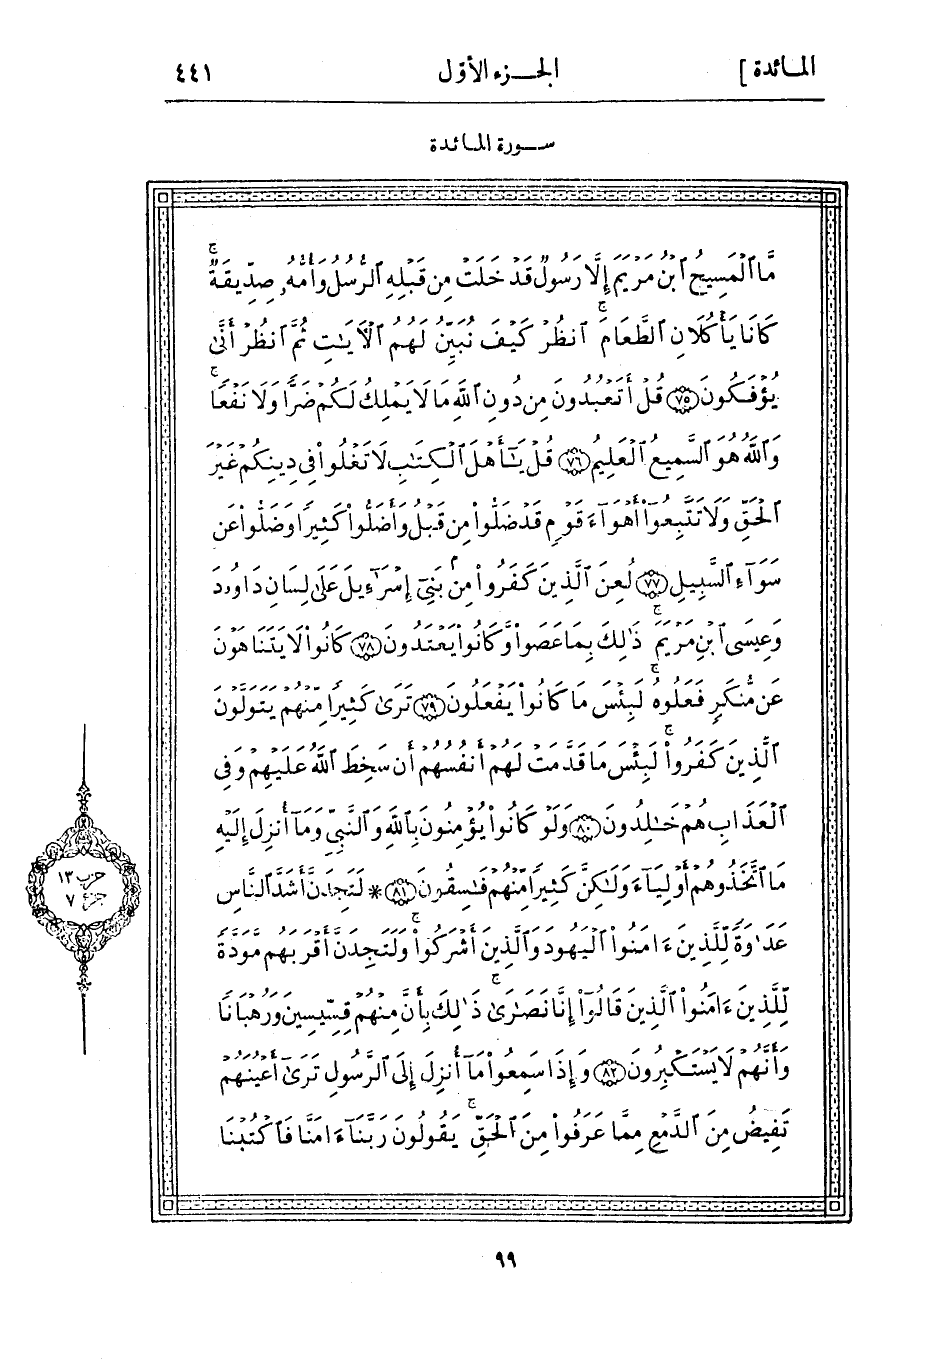 المائدة ]
الجزء الأول
٤٤١
سورة المائدة
مَّا ٱلْمَسِيحُ ٱبْنُ مَرْيَمَ إِلَّا رَسُولٌ قَدْ خَلَتْ مِن قَبْلِهِ ٱلرُّسُلُ وَأُمُّهُۥ صِدِّيقَةٌ ۖ
كَانَا يَأْكُلَانِ ٱلطَّعَامَ ۗ ٱنظُرْ كَيْفَ نُبَيِّنُ لَهُمُ ٱلْءَايَٰتِ ثُمَّ ٱنظُرْ أَنَّىٰ
يُؤْفَكُونَ ﴿٧٥﴾ قُلْ أَتَعْبُدُونَ مِن دُونِ ٱللَّهِ مَا لَا يَمْلِكُ لَكُمْ ضَرًّا وَلَا نَفْعًا ۚ
وَٱللَّهُ هُوَ ٱلسَّمِيعُ ٱلْعَلِيمُ ﴿٧٦﴾ قُلْ يَٰٓأَهْلَ ٱلْكِتَٰبِ لَا تَغْلُوا۟ فِى دِينِكُمْ غَيْرَ
ٱلْحَقِّ وَلَا تَتَّبِعُوٓا۟ أَهْوَآءَ قَوْمٍ قَدْ ضَلُّوا۟ مِن قَبْلُ وَأَضَلُّوا۟ كَثِيرًا وَضَلُّوا۟ عَن
سَوَآءِ ٱلسَّبِيلِ ﴿٧٧﴾ لُعِنَ ٱلَّذِينَ كَفَرُوا۟ مِنۢ بَنِىٓ إِسْرَٰٓءِيلَ عَلَىٰ لِسَانِ دَاوُۥدَ
وَعِيسَى ٱبْنِ مَرْيَمَ ۚ ذَٰلِكَ بِمَا عَصَوا۟ وَّكَانُوا۟ يَعْتَدُونَ ﴿٧٨﴾ كَانُوا۟ لَا يَتَنَاهَوْنَ
عَن مُّنكَرٍ فَعَلُوهُ ۚ لَبِئْسَ مَا كَانُوا۟ يَفْعَلُونَ ﴿٧٩﴾ تَرَىٰ كَثِيرًا مِّنْهُمْ يَتَوَلَّوْنَ
ٱلَّذِينَ كَفَرُوا۟ ۚ لَبِئْسَ مَا قَدَّمَتْ لَهُمْ أَنفُسُهُمْ أَن سَخِطَ ٱللَّهُ عَلَيْهِمْ وَفِى
ٱلْعَذَابِ هُمْ خَٰلِدُونَ ﴿٨٠﴾ وَلَوْ كَانُوا۟ يُؤْمِنُونَ بِٱللَّهِ وَٱلنَّبِىِّ وَمَآ أُنزِلَ إِلَيْهِ
مَا ٱتَّخَذُوهُمْ أَوْلِيَآءَ وَلَٰكِنَّ كَثِيرًا مِّنْهُمْ فَٰسِقُونَ ﴿٨١﴾ * لَتَجِدَنَّ أَشَدَّ ٱلنَّاسِ
عَدَٰوَةً لِّلَّذِينَ ءَامَنُوا۟ ٱلْيَهُودَ وَٱلَّذِينَ أَشْرَكُوا۟ ۖ وَلَتَجِدَنَّ أَقْرَبَهُم مَّوَدَّةً
لِّلَّذِينَ ءَامَنُوا۟ ٱلَّذِينَ قَالُوٓا۟ إِنَّا نَصَٰرَىٰ ۚ ذَٰلِكَ بِأَنَّ مِنْهُمْ قِسِّيسِينَ وَرُهْبَانًا
وَأَنَّهُمْ لَا يَسْتَكْبِرُونَ ﴿٨٢﴾ وَإِذَا سَمِعُوا۟ مَآ أُنزِلَ إِلَى ٱلرَّسُولِ تَرَىٰٓ أَعْيُنَهُمْ
تَفِيضُ مِنَ ٱلدَّمْعِ مِمَّا عَرَفُوا۟ مِنَ ٱلْحَقِّ ۖ يَقُولُونَ رَبَّنَآ ءَامَنَّا فَٱكْتُبْنَا
حزب ١٣
جزء ٧
٩٩